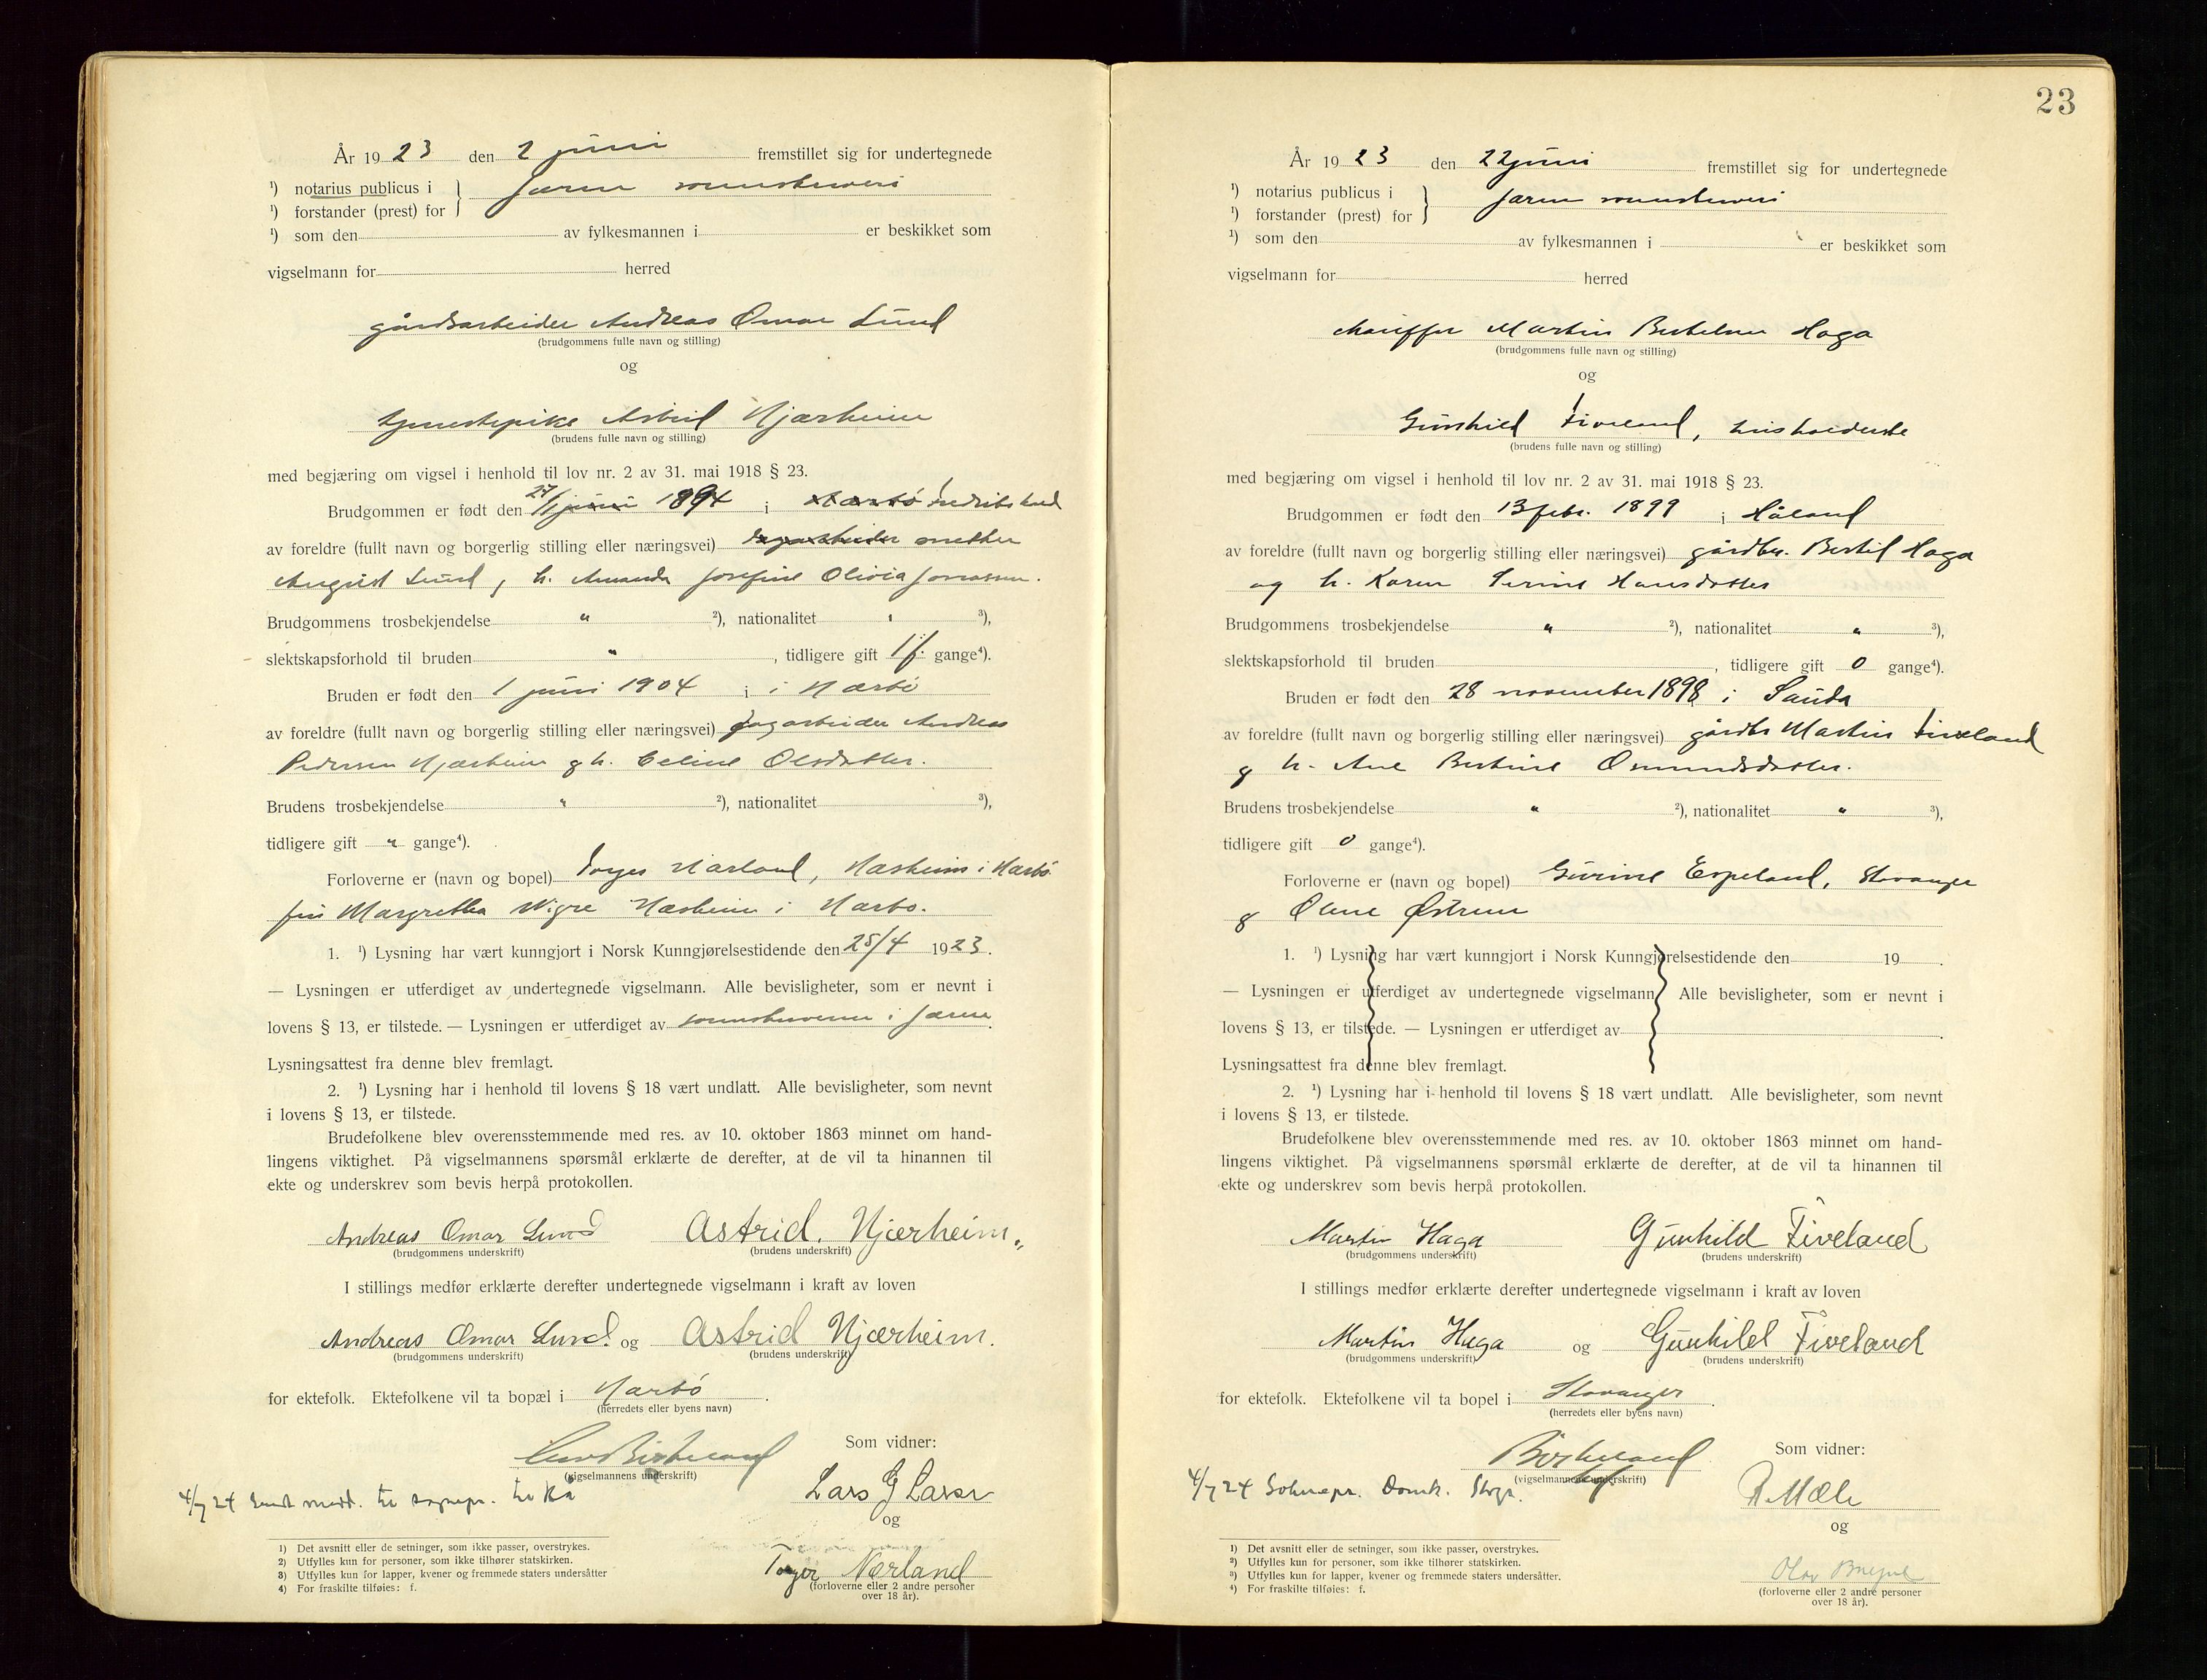 År 19 23 den 2 juni fremstillet sig for undertegnede
¹) notarius publicus i } Jæren sorenskriveri
¹) forstander (prest) for
¹) som den av fylkesmannen i er beskikket som
vigselmann for herred
gårdsarbeider Andreas Omar Lund
(brudgommens fulle navn og stilling)
og
tjenestepike Astrid Njærheim
(brudens fulle navn og stilling)
med begjæring om vigsel i henhold til lov nr. 2 av 31. mai 1918 § 23.
Brudgommen er født den juni 1894 i Nærbø Fredrikshald
av foreldre (fullt navn og borgerlig stilling eller næringsvei) dagarbeider
August Lund, h. Amanda Josefine Olivia Jonassen.
Brudgommens trosbekjendelse " ²), nationalitet " ³),
slektskapsforhold til bruden " , tidligere gift 1 f. gange⁴).
Bruden er født den 1 juni 1904 i i Nærbø
av foreldre (fullt navn og borgerlig stilling eller næringsvei) dagarbeider Andreas
Pedersen Njærheim g h. Celine Olsdatter.
Brudens trosbekjendelse " ²), nationalitet ³),
tidligere gift " gange⁴).
Forloverne er (navn og bopel) Torger Nærland, Næsheim i Nærbø
fru Margretha Vigre Næsheim i Nærbø.
1. ¹) Lysning har vært kunngjort i Norsk Kunngjørelsestidende den 25/4 1923.
— Lysningen er utferdiget av undertegnede vigselmann. Alle bevisligheter, som er nevnt i
lovens § 13, er tilstede. — Lysningen er utferdiget av sorenskriveren i Jæren.
Lysningsattest fra denne blev fremlagt.
2. ¹) Lysning har i henhold til lovens § 18 vært undlatt. Alle bevisligheter, som nevnt
i lovens § 13, er tilstede.
Brudefolkene blev overensstemmende med res. av 10. oktober 1863 minnet om hand-
lingens viktighet. På vigselmannens spørsmål erklærte de derefter, at de vil ta hinannen til
ekte og underskrev som bevis herpå protokollen.
Andreas Omar Lund Astrid. Njærheim.
(brudgommens underskrift) (brudens underskrift)
I stillings medfør erklærte derefter undertegnede vigselmann i kraft av loven
Andreas Omar Lund. og Astrid Njærheim.
(brudgommens underskrift) (brudens underskrift)
for ektefolk. Ektefolkene vil ta bopæl i Nærbø .
(herredets eller byens navn)
Birkeland
(vigselmannens underskrift)
Som vidner:
4/7 24 Sendt medd. til sognepr. til Hå
Lars G Larsen
og
Torger Nærland
(forloverne eller 2 andre personer
over 18 år).
1) Det avsnitt eller de setninger, som ikke passer, overstrykes.
2) Utfylles kun for personer, som ikke tilhører statskirken.
3) Utfylles kun for lapper, kvener og fremmede staters undersåtter
4) For fraskilte tilføies: f.
23
År 19 23 den 22 juni fremstillet sig for undertegnede
¹) notarius publicus i } Jæren sorenskriveri
¹) forstander (prest) for
¹) som den av fylkesmannen i er beskikket som
vigselmann for herred
chauffør Martin Bertelsen Haga
(brudgommens fulle navn og stilling)
og
Gunhild Fiveland, husholderske
(brudens fulle navn og stilling)
med begjæring om vigsel i henhold til lov nr. 2 av 31. mai 1918 § 23.
Brudgommen er født den 13 febr. 1899 i Håland
av foreldre (fullt navn og borgerlig stilling eller næringsvei) gårdbr. Bertil Haga
og h. Karen Serine Hansdatter
Brudgommens trosbekjendelse " ²), nationalitet " ³),
slektskapsforhold til bruden , tidligere gift 0 gange⁴).
Bruden er født den 28 november 1898 i Sauda
av foreldre (fullt navn og borgerlig stilling eller næringsvei) gårdbr Martin Fiveland
g h. Ane Bertine Osmundsdatter.
Brudens trosbekjendelse " ²), nationalitet " ³),
tidligere gift 0 gange⁴).
Forloverne er (navn og bopel) Gurine Espeland, Stavanger
g Olene Østrem
1. ¹) Lysning har vært kunngjort i Norsk Kunngjørelsestidende den 19 .
— Lysningen er utferdiget av undertegnede vigselmann Alle bevisligheter, som er nevnt i
lovens § 13, er tilstede. — Lysningen er utferdiget av .
Lysningsattest fra denne blev fremlagt.
2. ¹) Lysning har i henhold til lovens § 18 vært undlatt. Alle bevisligheter, som nevnt
i lovens § 13, er tilstede.
Brudefolkene blev overensstemmende med res. av 10. oktober 1863 minnet om hand-
lingens viktighet. På vigselmannens spørsmål erklærte de derefter, at de vil ta hinannen til
ekte og underskrev som bevis herpå protokollen.
Martin Haga Gunhild Fiveland
(brudgommens underskrift) (brudens underskrift)
I stillings medfør erklærte derefter undertegnede vigselmann i kraft av loven
Martin Haga og Gunhild Fiveland
(brudgommens underskrift) (brudens underskrift)
for ektefolk. Ektefolkene vil ta bopel i Stavanger .
(herredets eller byens navn)
Birkeland
(vigselmannens underskrift)
Som vidner:
4/7 24 Sognepr. Domk. Stvgr.
Mæle
og
Olav
(forloverne eller 2 andre personer
over 18 år).
1) Det avsnitt eller de setninger, som ikke passer, overstrykes.
²) Utfylles kun for personer, som ikke tilhører statskirken.
³) Utfylles kun for lapper, kvener og fremmede staters undersåtter.
⁴) For fraskilte tilføies: f.